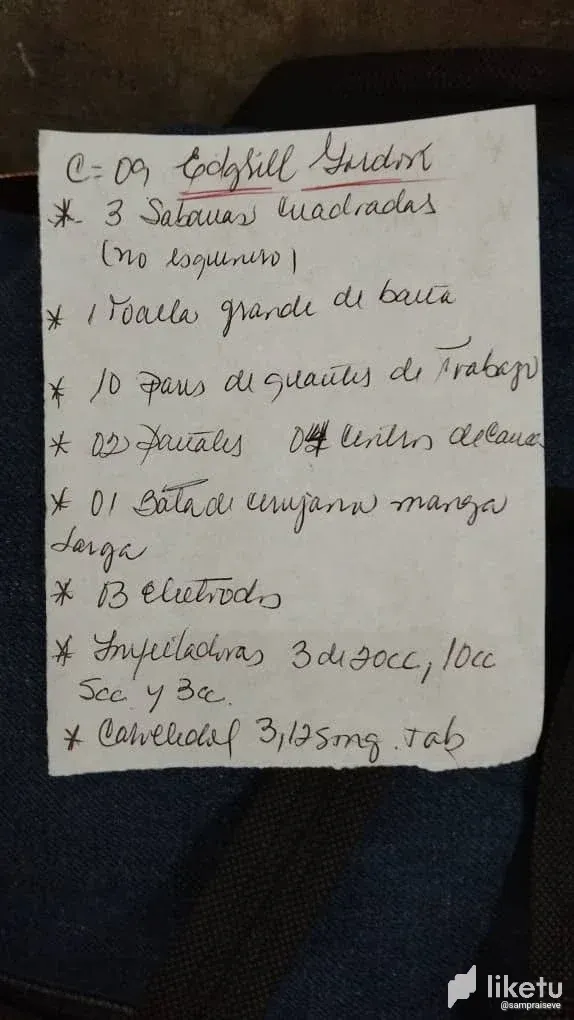 C=09 Edgsill Gordon
* 3 Sabanas Cuadradas
(no esquinero)
* 1 Toalla grande de baño
* 10 Pares de guantes de Trabajo
* 02 Pañales 04 Centros de Cama
* 01 Bata de cirujano manga
Larga
* 03 Electrodos
* Inyectadoras 3 de 20cc, 10cc
5cc y 3cc.
* Carvedilol 3,125mg. tab
liketu
@sampraiseve